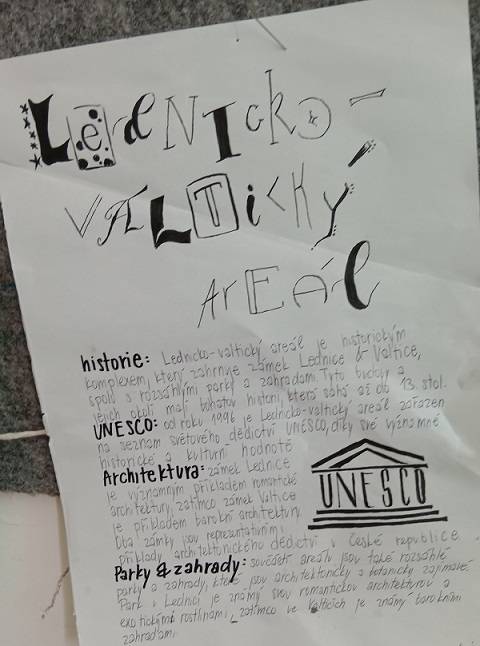 Lednicko-
Valtický
Areál
historie: Lednicko-valtický areál je historickým
komplexem, který zahrnuje zámek Lednice & Valtice,
spolu s rozsáhlými parky a zahradami. Tyto budovy a
jejich okolí mají bohatov historii, která sahá až do 13. stol.
UNESCO: od roku 1996 je Lednicko-valtický areál zařazen
na seznam světového dědictví UNESCO, díky své významné
historické a kulturní hodnotě
Architektura: zámek Lednice
je významným příkladem romantické
architektury, zatímco zámek Valtice
je příkladem barokní architektury.
Oba zámky jsou reprezentativními
příklady architektonického dědictví v České republice.
UNESCO
Parky & zahrady: součástí areálu jsou také rozsáhlé
parky a zahrady, které jsou architektonicky a botanicky zajímavé.
Park v Lednici je známý svou romantickov architekturov a
exotickými rostlinami, zatímco ve Valticích je známý barokními
zahradami.